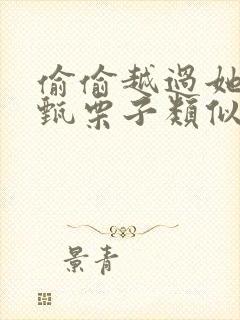 偷偷越過她
甄栗子類似
景青